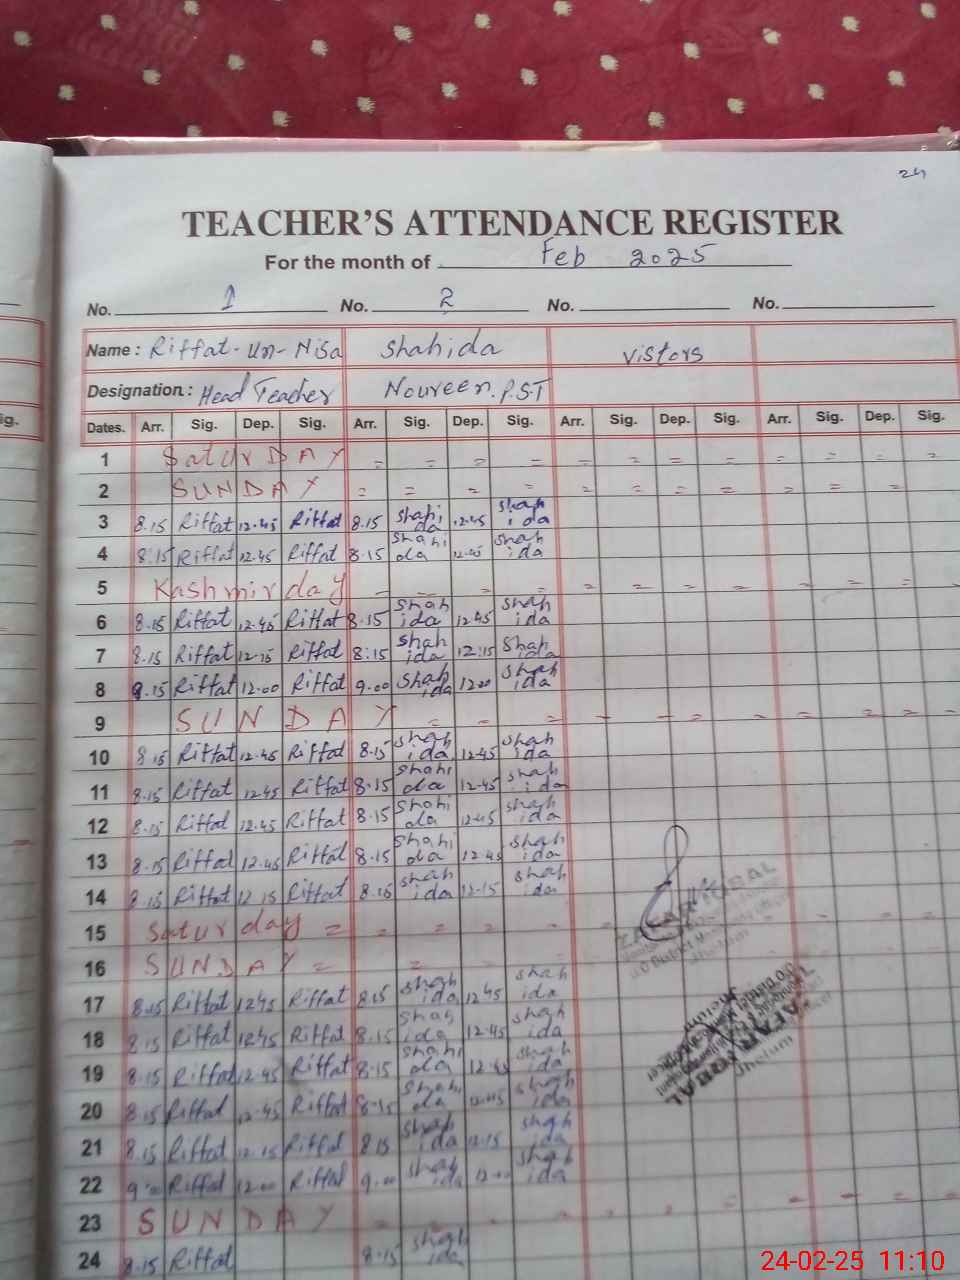 24
TEACHER'S ATTENDANCE REGISTER
For the month of Feb 2025
No. 1 No. 2 No. No.
Name: Riffat-un-Nisa Shahida vistors
Designation: Head Teacher Noureen. P.S.T
ig.
Dates. Arr. Sig. Dep. Sig. Arr. Sig. Dep. Sig. Arr. Sig. Dep. Sig. Arr. Sig. Dep. Sig.
1 SaturDAY = = = = = = = = = = = =
2 SUNDAY = = = = = = = = = = =
3 8.15 Riffat 12.45 Riffat 8.15 shahida 12.45 shahida
4 8.15 Riffat 12.45 Riffat 8.15 shahida 12.45 shahida
5 Kashmir day - - = = = = = = = = =
6 8.15 Riffat 12.45 Riffat 8.15 shahida 12.45 shahida
7 8.15 Riffat 12.15 Riffat 8.15 shahida 12.15 shahida
8 9.15 Riffat 12.00 Riffat 9.00 shahida 12.00 shahida
9 SUNDAY = = = - - = = = = = =
10 8.15 Riffat 12.45 Riffat 8.15 shahida 12.45 shahida
11 8.15 Riffat 12.45 Riffat 8.15 shahida 12.45 shahida
12 8.15 Riffat 12.45 Riffat 8.15 shahida 12.45 shahida
13 8.15 Riffat 12.45 Riffat 8.15 shahida 12.45 shahida
14 8.15 Riffat 12.15 Riffat 8.15 shahida 12.15 shahida
15 Saturday = = = = =
16 SUNDAY = = =
17 8.15 Riffat 12.45 Riffat 8.15 shahida 12.45 shahida
18 8.15 Riffat 12.45 Riffat 8.15 shahida 12.45 shahida
19 8.15 Riffat 12.45 Riffat 8.15 shahida 12.45 shahida
20 8.15 Riffat 12.45 Riffat 8.15 shahida 12.45 shahida
21 8.15 Riffat 12.15 Riffat 8.15 shahida 12.15 shahida
22 9.00 Riffat 12.00 Riffat 9.00 shahida 12.00 shahida
23 SUNDAY = = - = = = = = - = =
24 8.15 Riffat 8.15 shahida
ZAFAR IQBAL
Jhelum
ZAFAR IQBAL
Jhelum
24-02-25 11:10